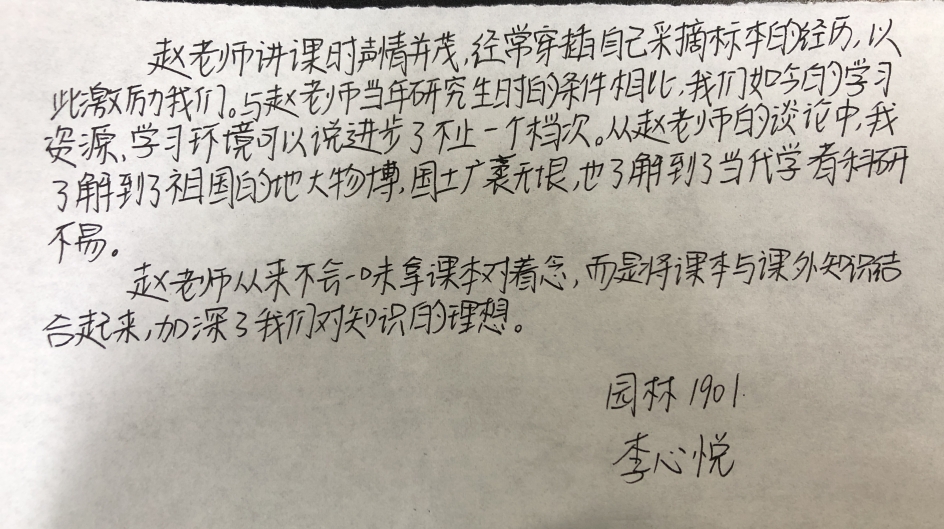 赵老师讲课时声情并茂,经常穿插自己采摘标本的经历,以
此激励我们。与赵老师当年研究生时的条件相比,我们如今的学习
资源、学习环境可以说进步了不止一个档次。从赵老师的谈论中,我
了解到了祖国的地大物博,国土广袤无垠,也了解到了当代学者科研
不易。
赵老师从来不会一味拿课本对着念,而是将课本与课外知识结
合起来,加深了我们对知识的理想。
园林1901.
李心悦